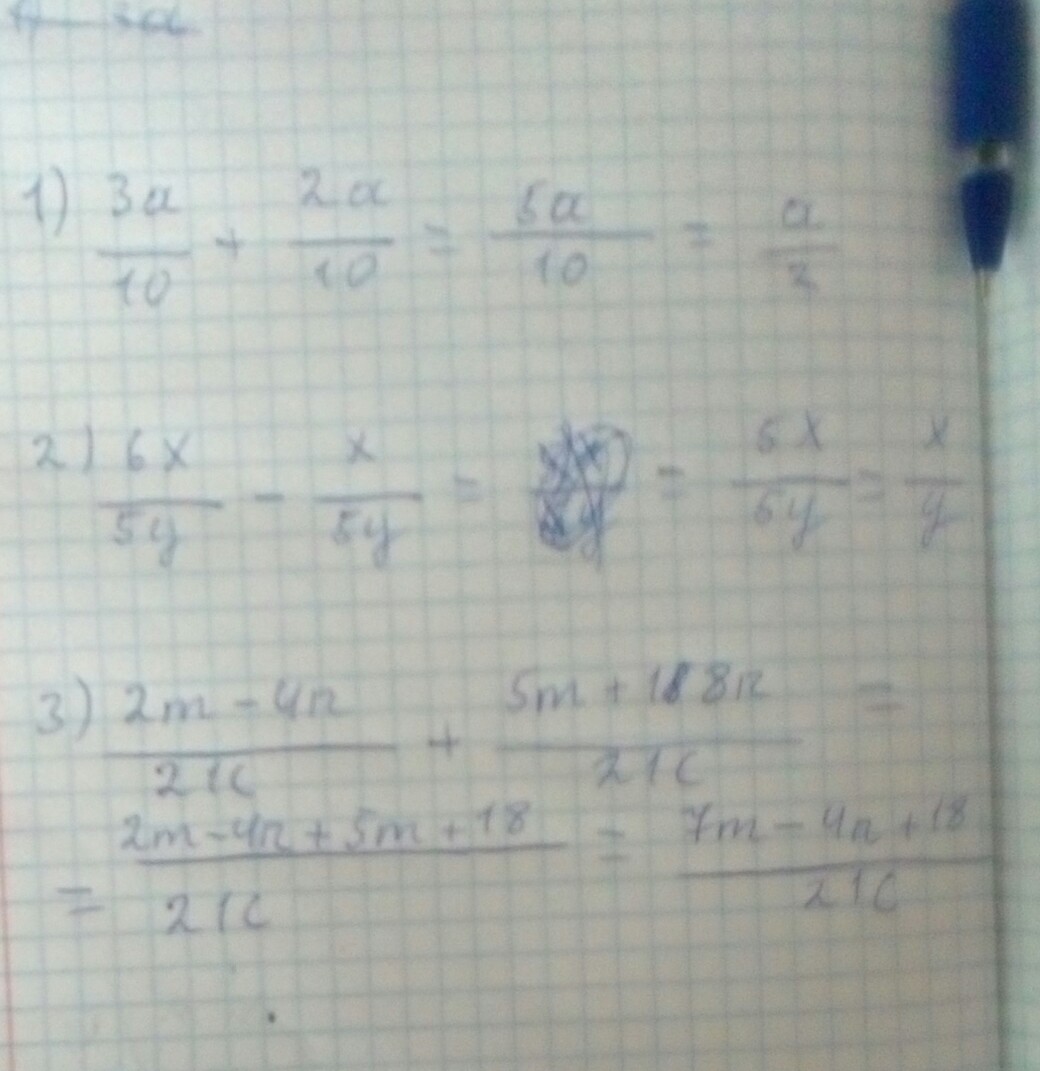 1) 3a/10 + 2a/10 = 5a/10 = a/2
2) 6x/5y - x/5y = = 5x/5y = x/y
3) 2m - 4n/21c + 5m + 188n/21c =
= 2m - 4n + 5m + 18/21c = 7m - 4n + 18/21c